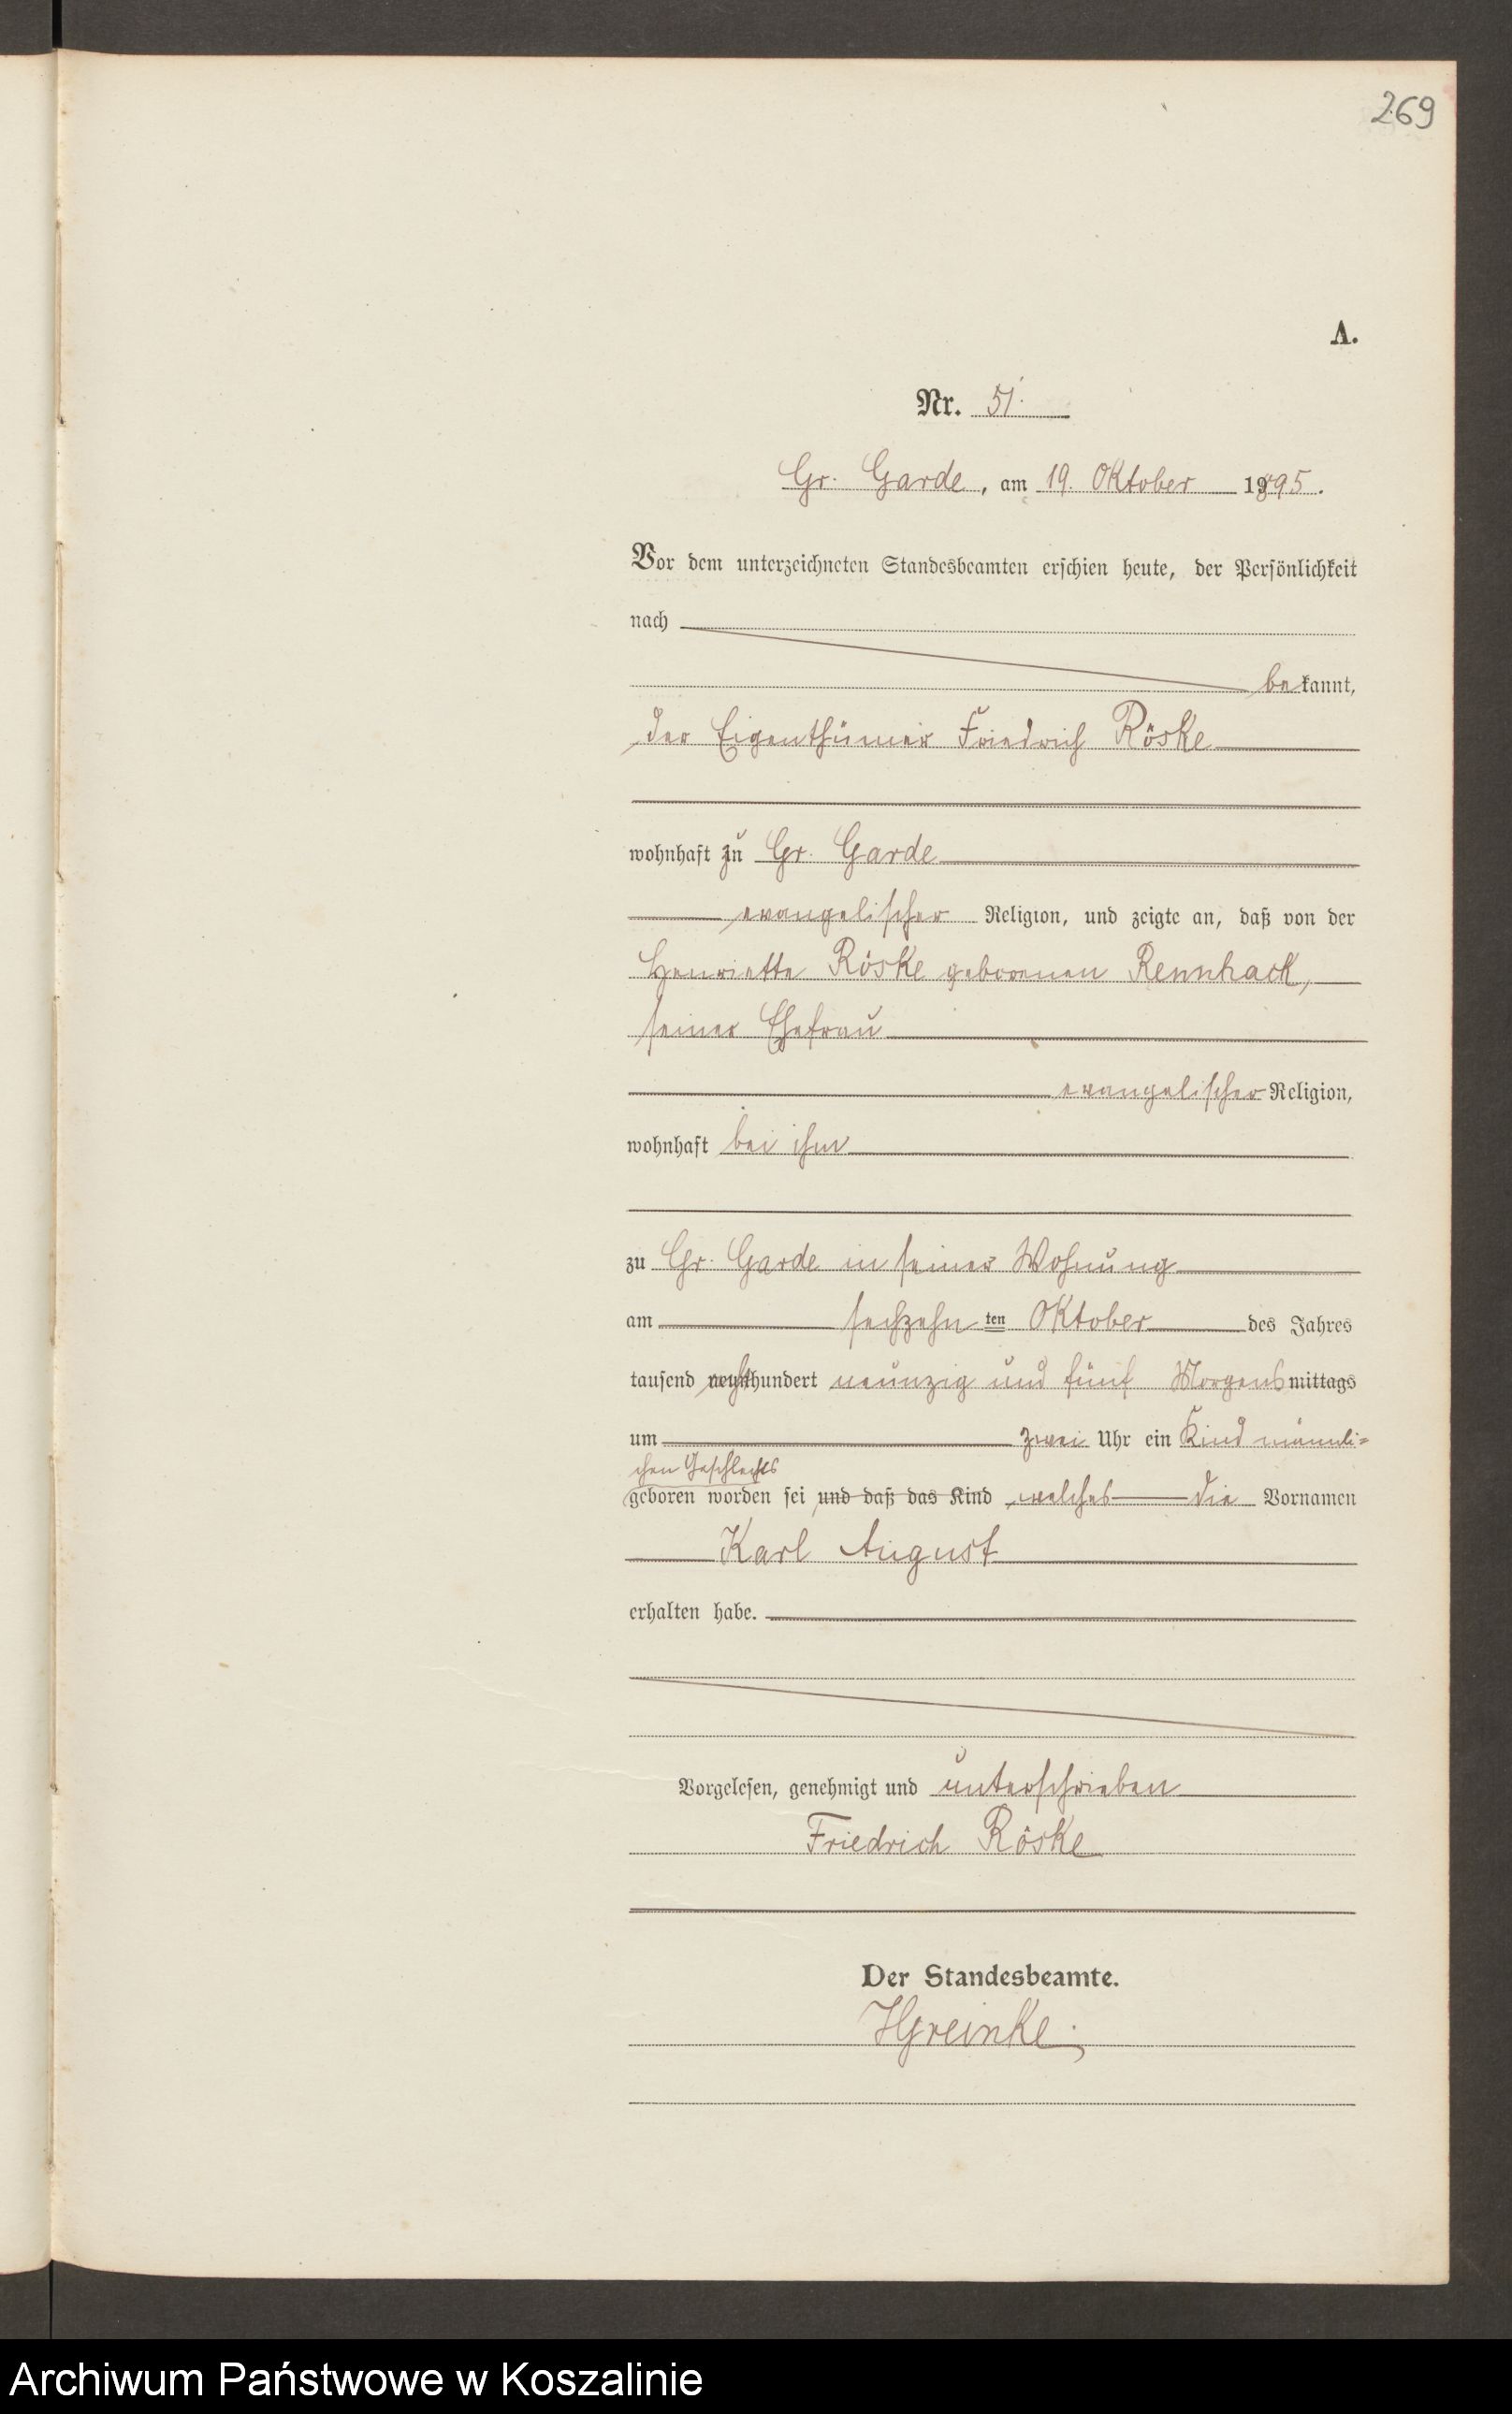 269
A.
Nr. 51.
Gr. Garde, am 19. Oktober 1895.
Vor dem unterzeichneten Standesbeamten erschien heute, der Persönlichkeit
nach
bekannt,
der Eigenthümer Friedrich Röske
wohnhaft zu Gr. Garde
evangelischer Religion, und zeigte an, daß von der
Henriette Röske geborenen Rennhack,
seiner Ehefrau
evangelischer Religion,
wohnhaft bei ihm
zu Gr. Garde in seiner Wohnung
am sechzehnten Oktober des Jahres
tausend achthundert neunzig und fünf Morgens mittags
um zwei Uhr ein Kind männli-
chen Geschlechts
geboren worden sei und daß das Kind welches die Vornamen
Karl August
erhalten habe.
Vorgelesen, genehmigt und unterschrieben
Friedrich Röske
Der Standesbeamte.
HGreinke.
Archiwum Państwowe w Koszalinie